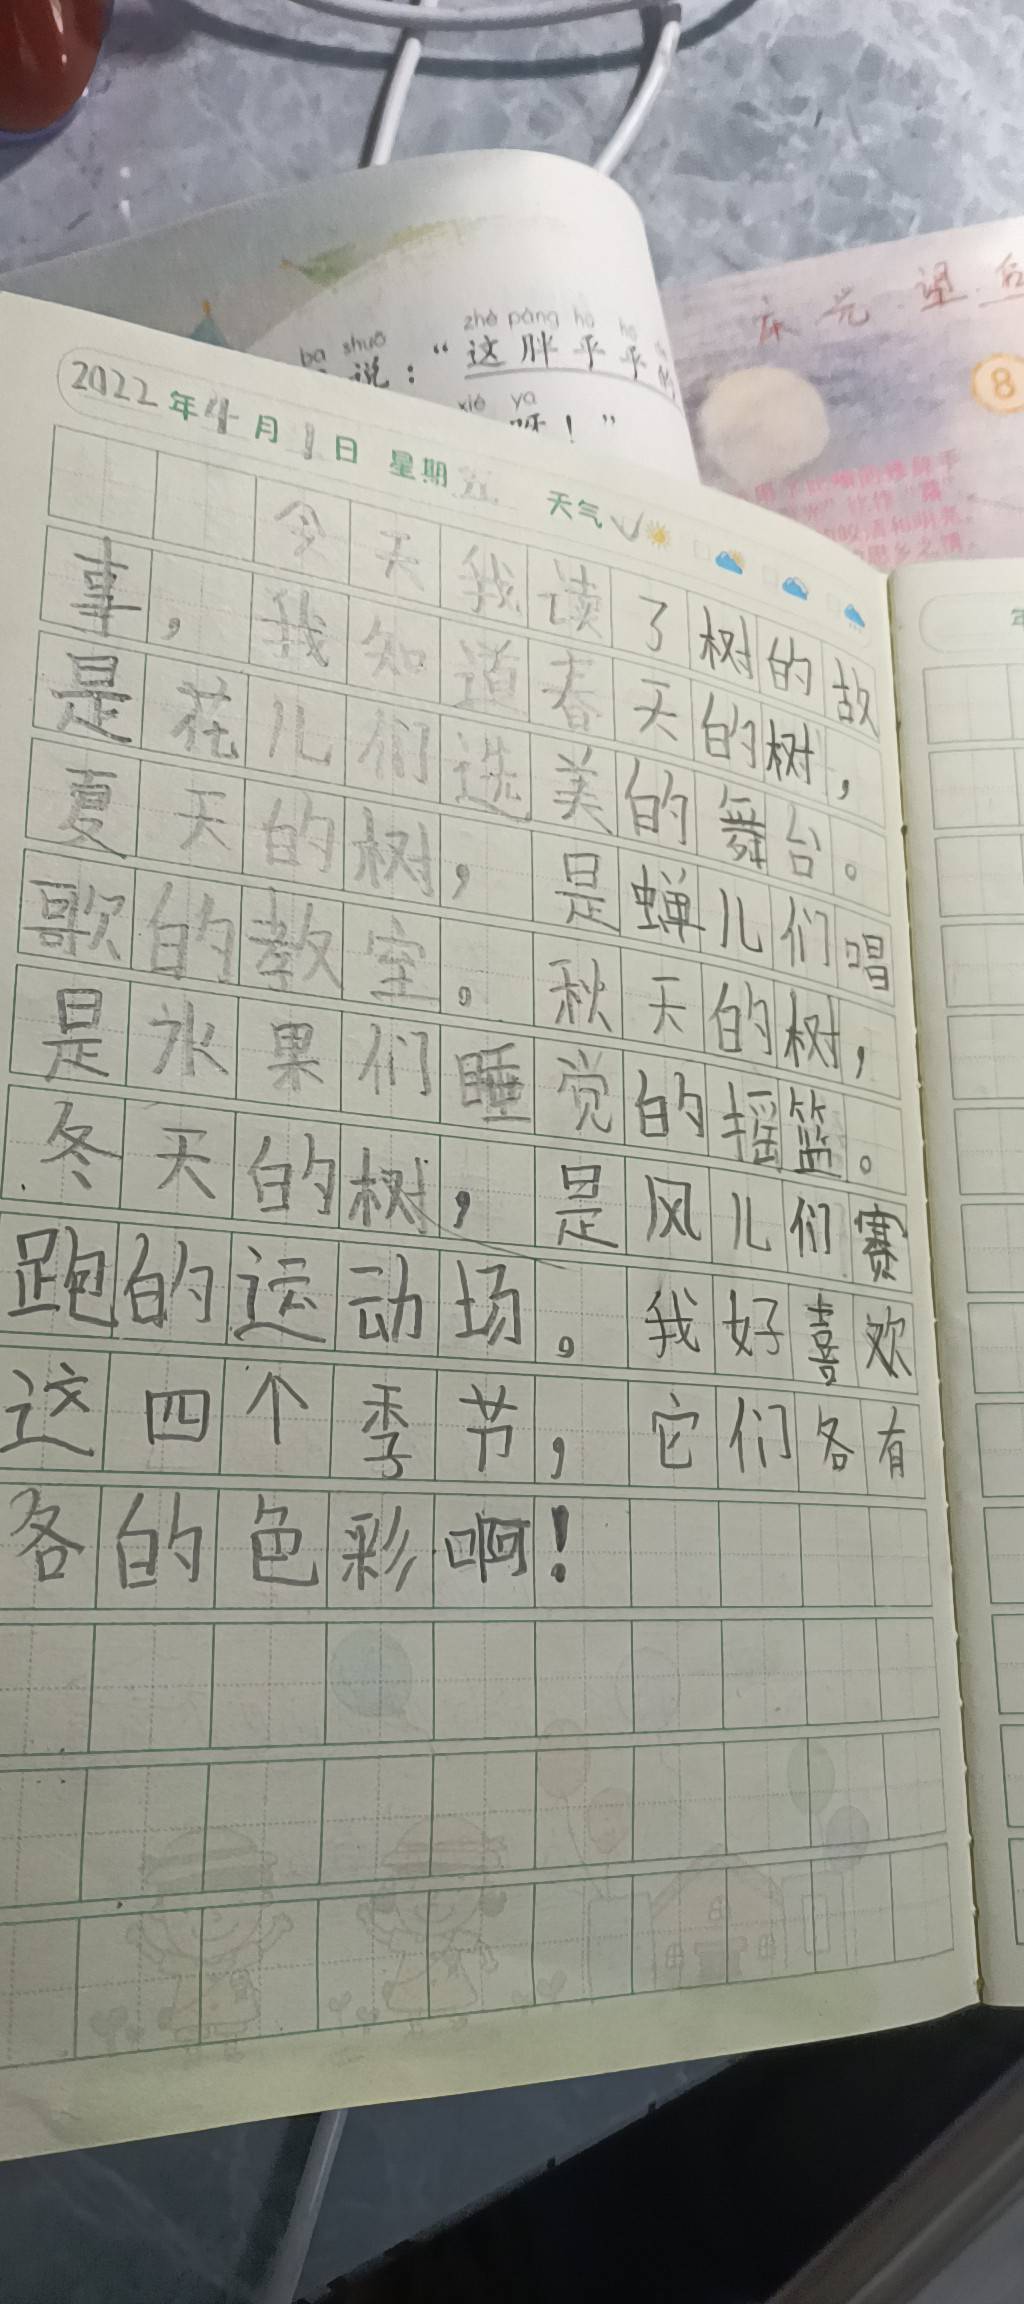 ba shuo
说：“这胖乎乎的
zhè pàng hū hū
xiè ya
呀！”
8
2022年4月1日 星期五 天气
今天我读了树的故
事，我知道春天的树，
是花儿们选美的舞台。
夏天的树，是蝉儿们唱
歌的教室。秋天的树，
是水果们睡觉的摇篮。
冬天的树，是风儿们赛
跑的运动场。我好喜欢
这四个季节，它们各有
各的色彩啊！
年